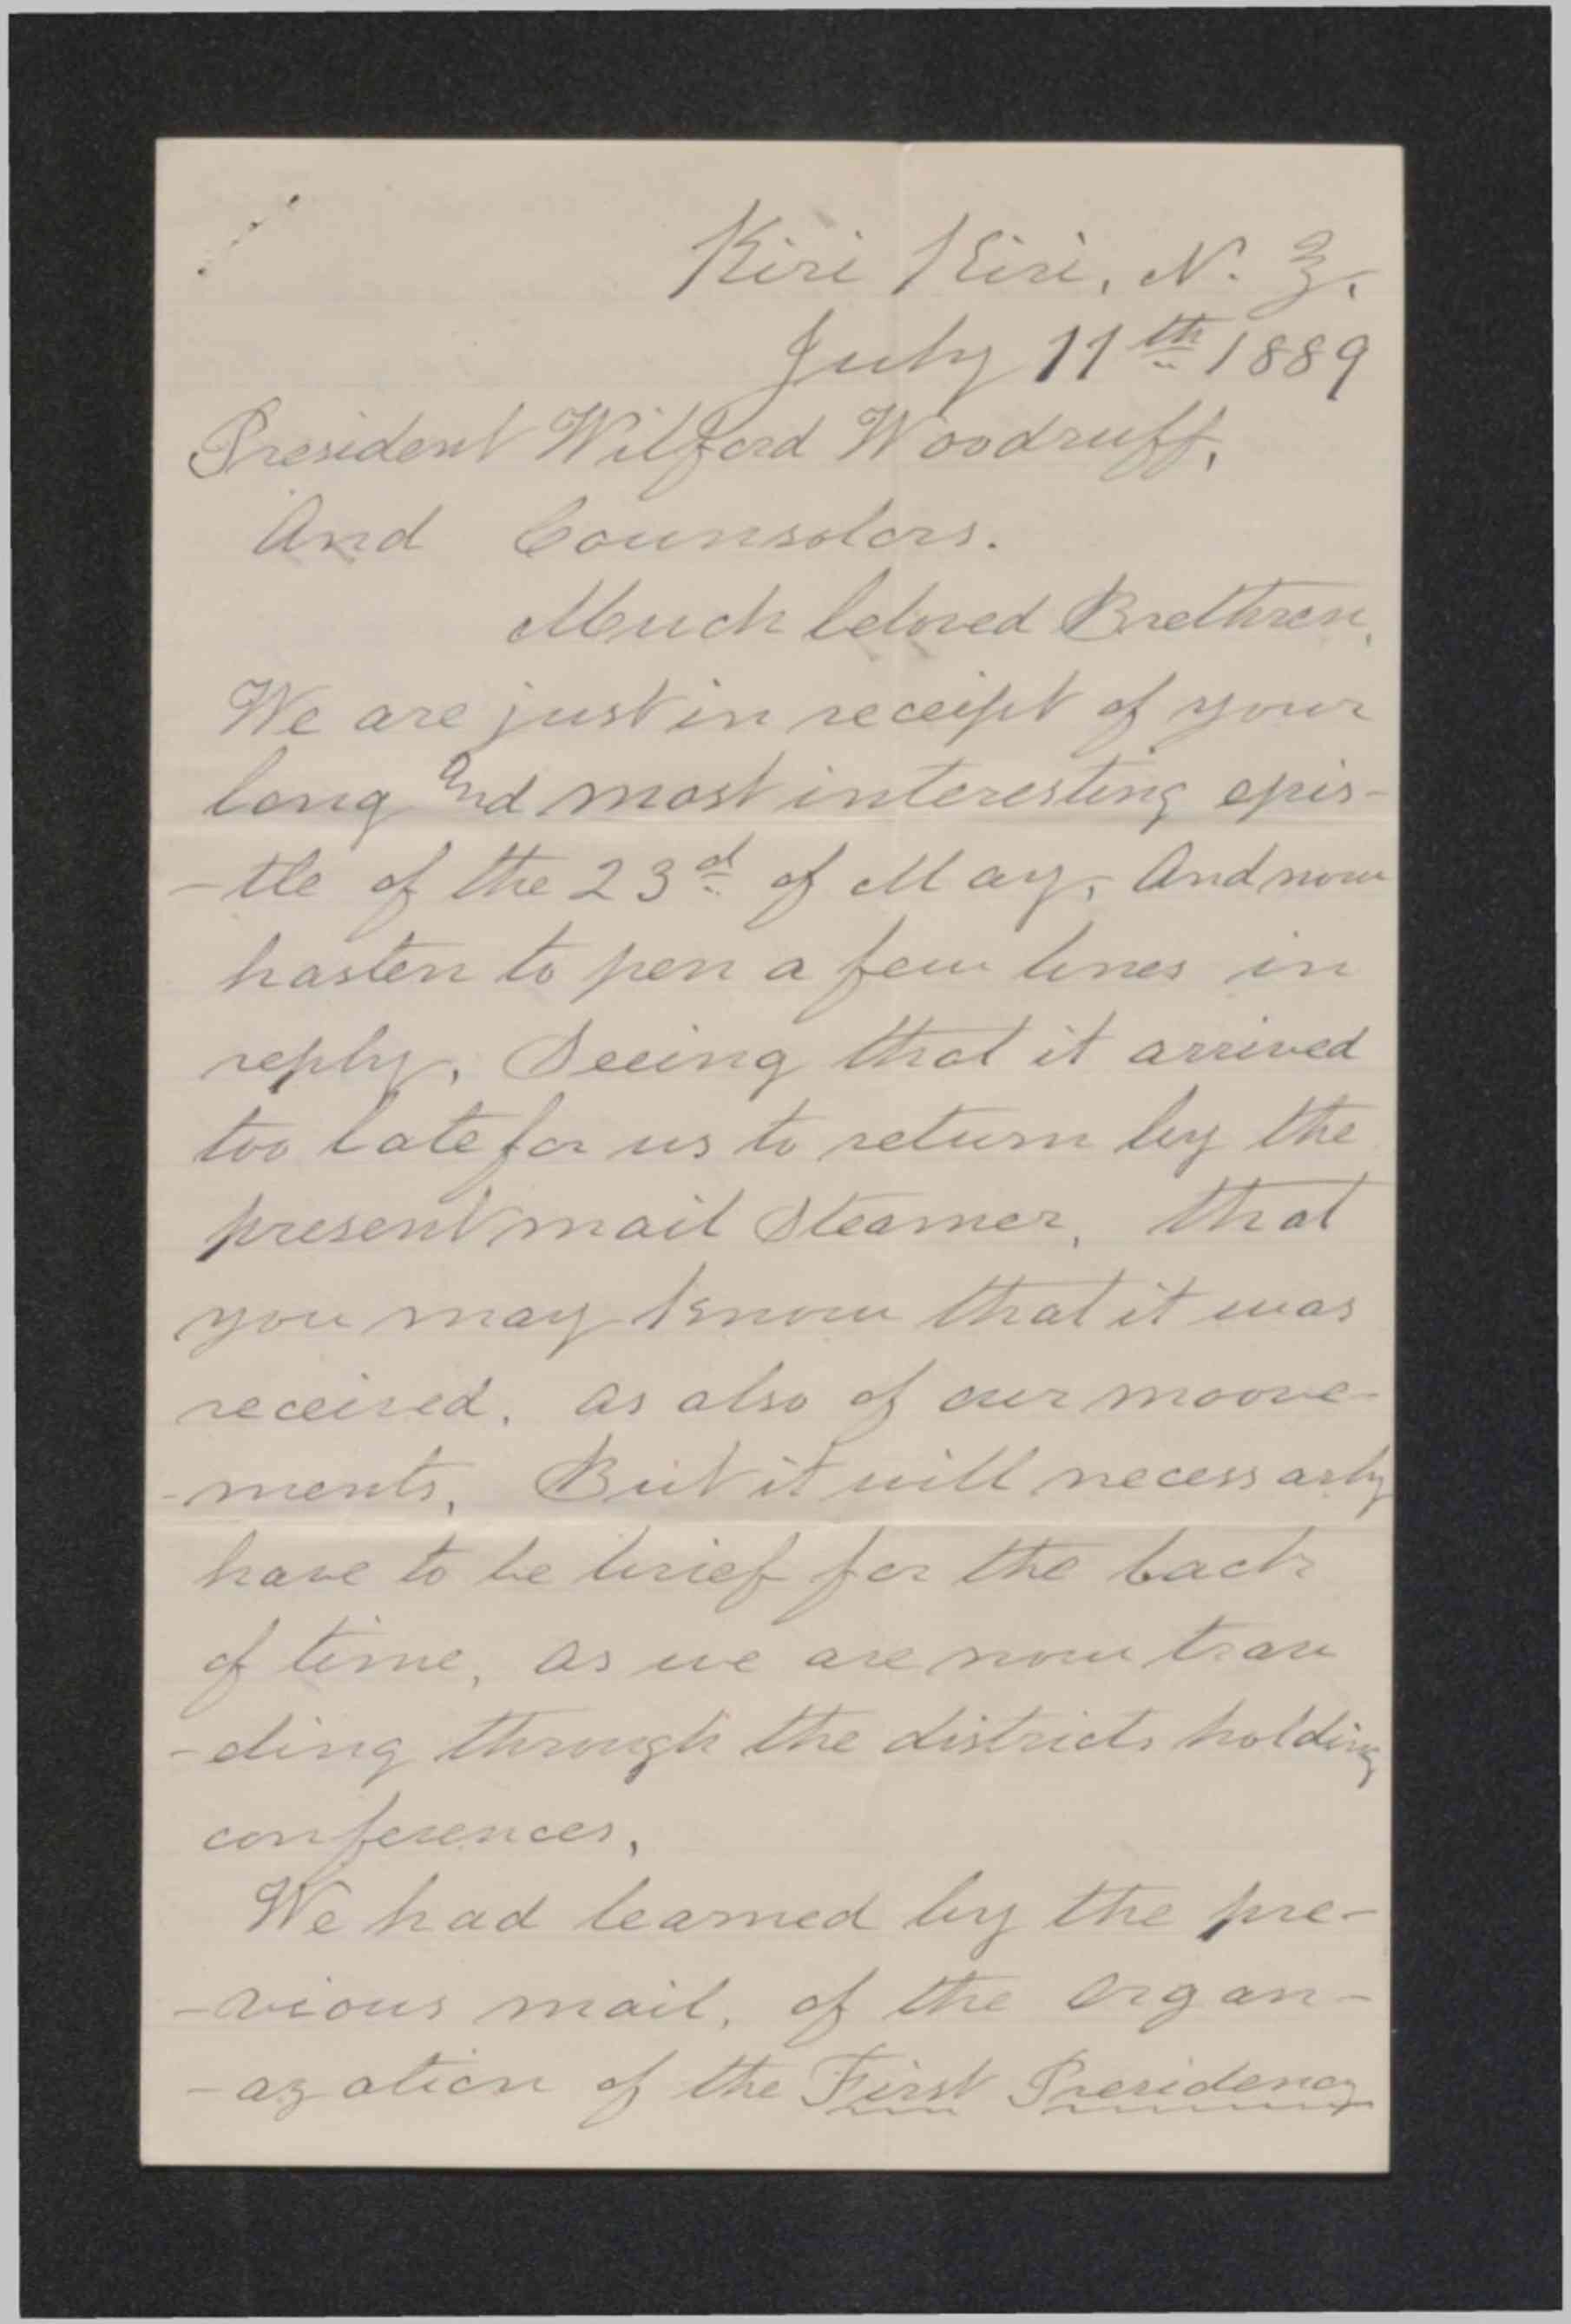 Kiri Kiri, N. Z.
July 11th 1889
President Wilford Woodruff,
And Counsolors.
Much beloved Brethren,
We are just in receipt of your
long and most interesting epis-
-tle of the 23d of May, And now
hasten to pen a few lines in
reply, Seeing that it arrived
too late for us to return by the
present mail Steamer, that
you may know that it was
received, as also of our moove-
-ments, But it will necessarly
have to be brief for the lack
of time, as we are now trav
-eling through the districts holding
conferences,
We had learned by the pre-
-vious mail, of the organ-
-azation of the First Presidency